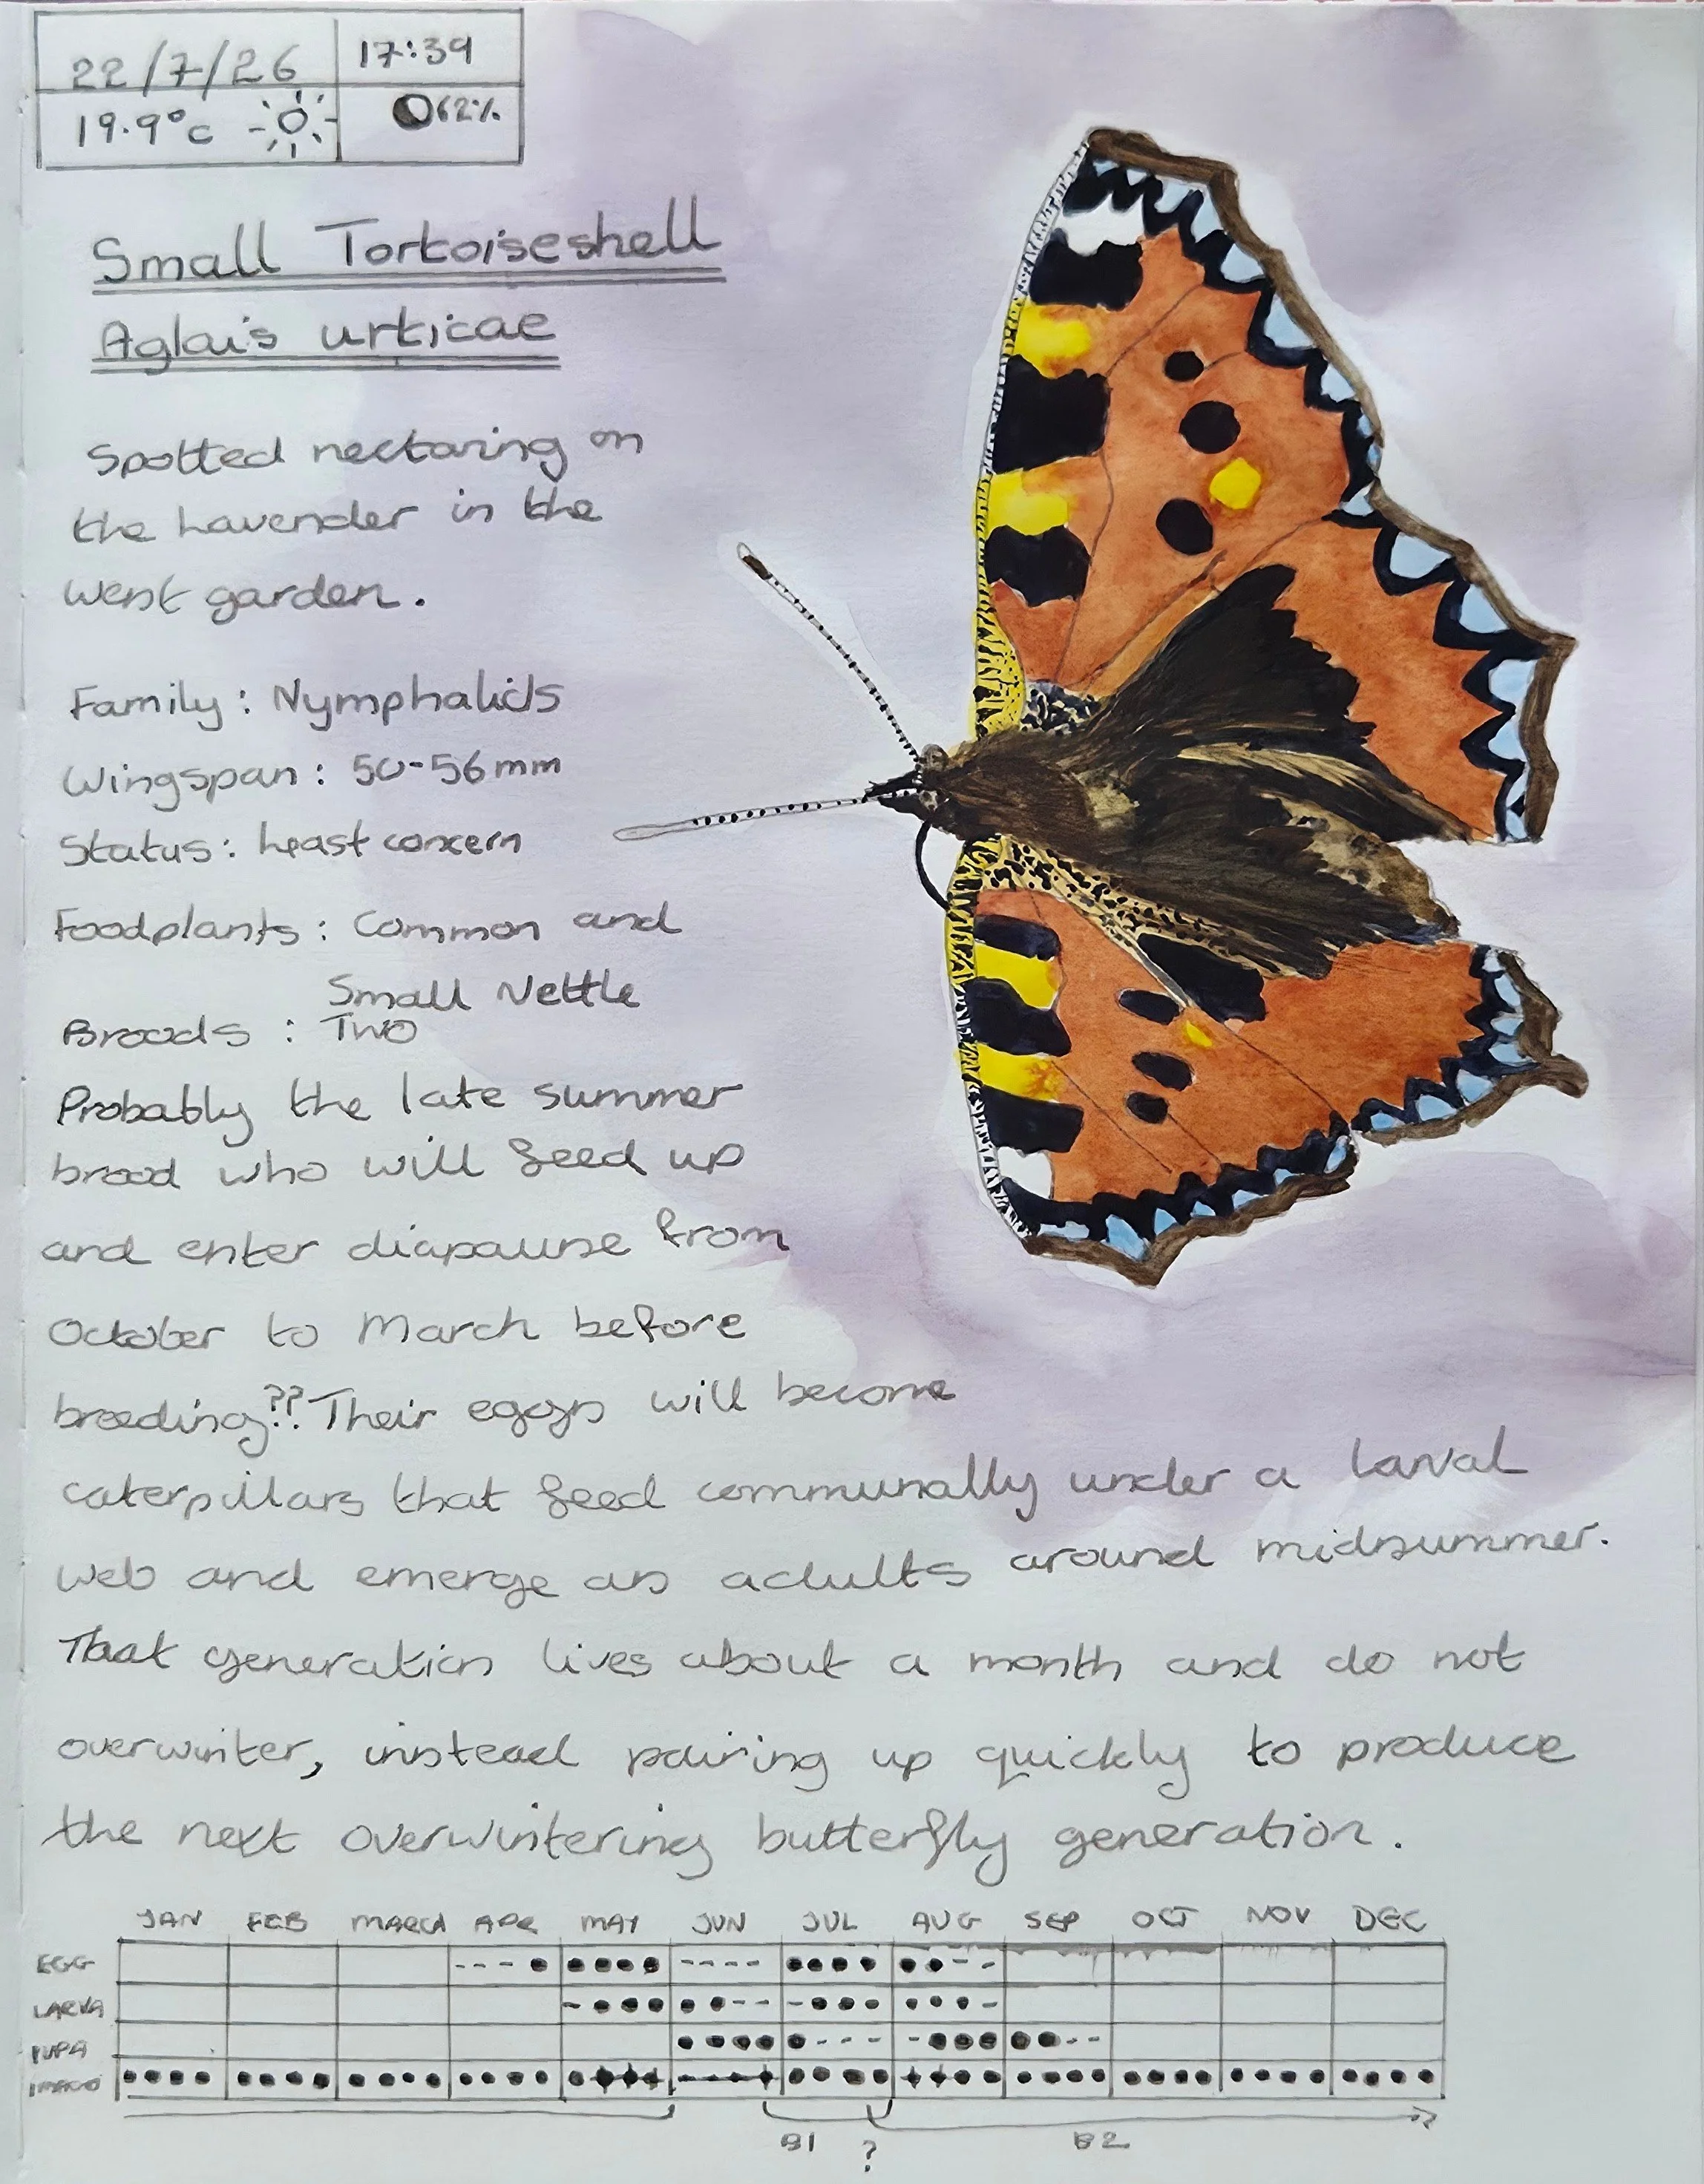 22/7/26
17:39
19.9°c
62%
Small Tortoiseshell
Aglais urticae
Spotted nectaring on
the Lavender in the
west garden.
Family : Nymphalids
Wingspan : 50-56mm
Status : Least concern
Foodplants : Common and
Small Nettle
Broods : Two
Probably the late summer
brood who will feed up
and enter diapause from
October to March before
breeding?? Their eggs will become
caterpillars that feed communally under a larval
web and emerge as adults around midsummer.
That generation lives about a month and do not
overwinter, instead pairing up quickly to produce
the next overwintering butterfly generation.
JAN FEB MARCH APR MAY JUN JUL AUG SEP OCT NOV DEC
EGG
LARVA
PUPA
IMAGO
B1 ? B2